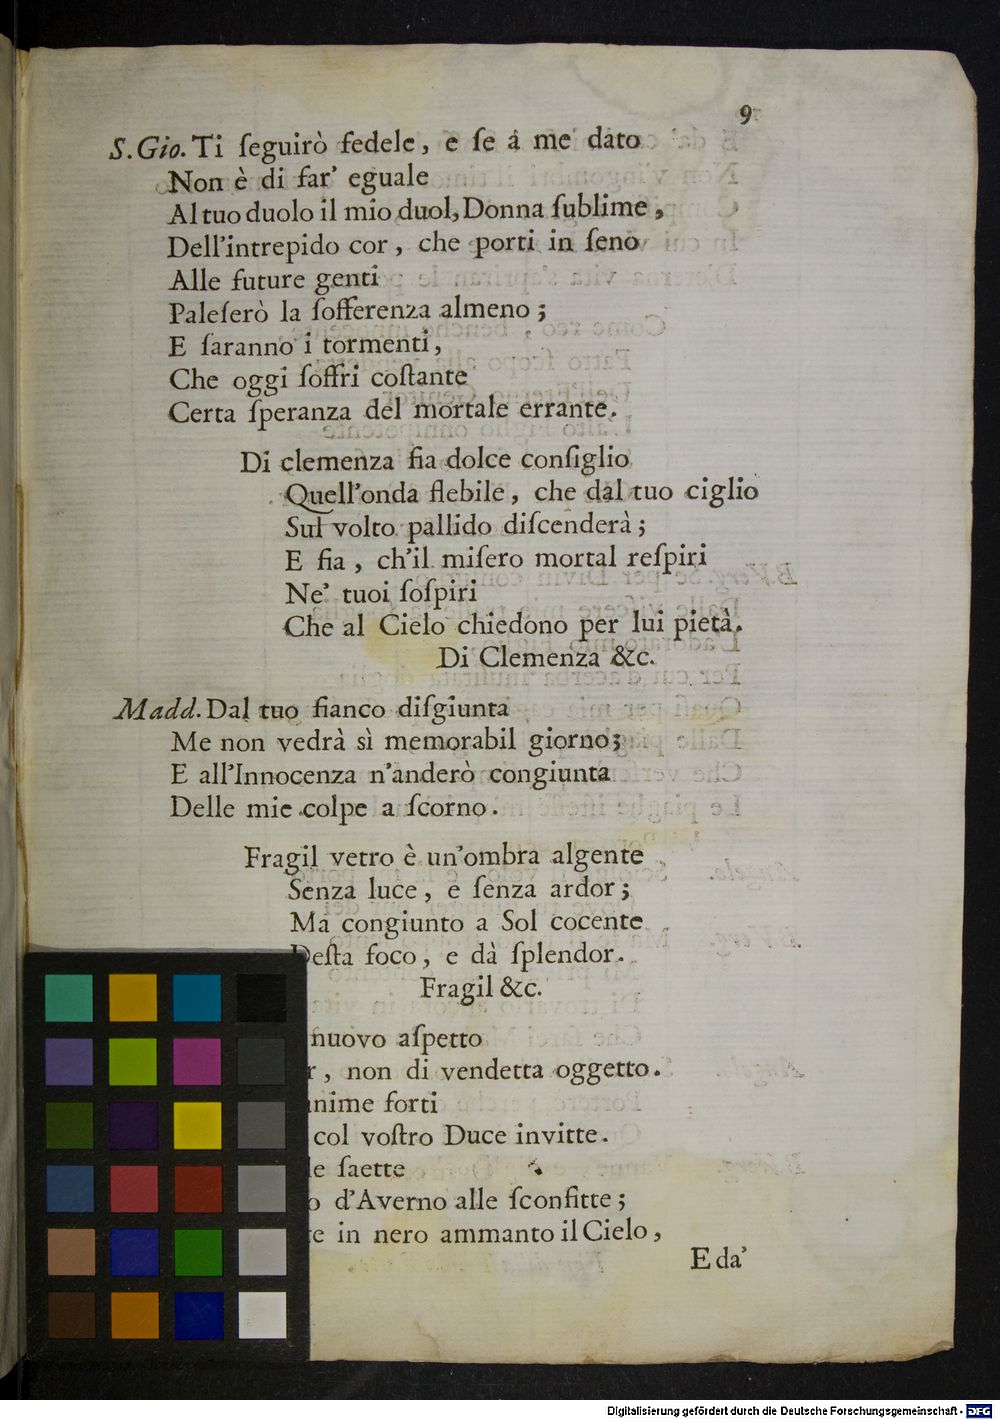 9
S.Gio. Ti ſeguirò fedele, e ſe à me dato
Non è di far' eguale
Al tuo duolo il mio duol, Donna ſublime,
Dell'intrepido cor, che porti in ſeno
Alle future genti
Paleſerò la ſofferenza almeno;
E ſaranno i tormenti,
Che oggi ſoffri coſtante
Certa ſperanza del mortale errante.
Di clemenza fia dolce conſiglio
Quell'onda flebile, che dal tuo ciglio
Sul volto pallido diſcenderà;
E fia, ch'il miſero mortal reſpiri
Ne' tuoi ſoſpiri
Che al Cielo chiedono per lui pietà.
Di Clemenza &c.
Madd. Dal tuo fianco diſgiunta
Me non vedrà sì memorabil giorno;
E all'Innocenza n'anderò congiunta
Delle mie colpe a ſcorno.
Fragil vetro è un'ombra algente
Senza luce, e ſenza ardor;
Ma congiunto a Sol cocente
Deſta foco, e dà ſplendor.
Fragil &c.
nuovo aſpetto
r, non di vendetta oggetto.
nime forti
col voſtro Duce invitte.
le ſaette
o d'Averno alle ſconfitte;
re in nero ammanto il Cielo,
E da'
Digitalisierung gefördert durch die Deutsche Forschungsgemeinschaft - DFG